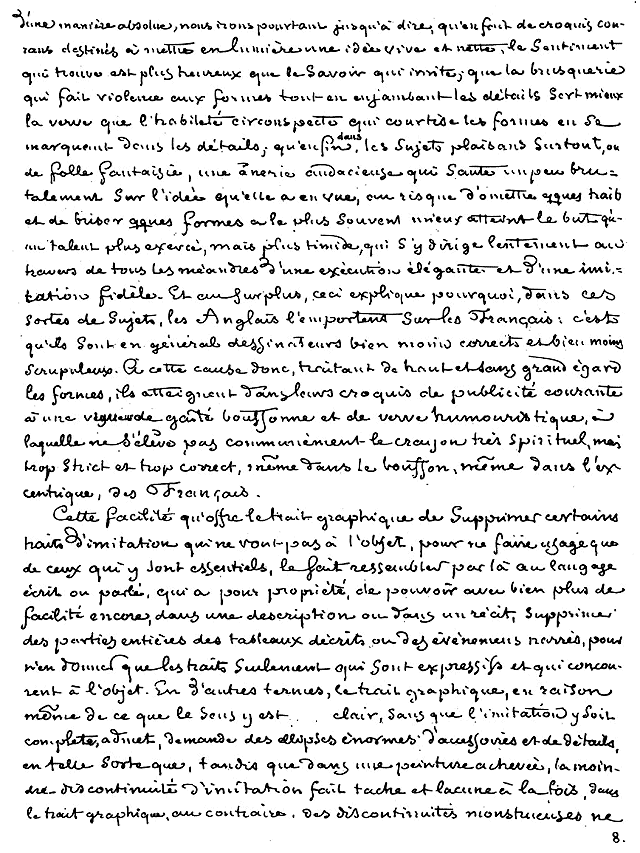 d'une manière absolue, nous irons pourtant jusqu'à dire, qu'en fait de croquis cou-
rans destinés à mettre en lumière une idée vive et nette, le Sentiment
qui trouve est plus heureux que le Savoir qui imite; que la brusquerie
qui fait violence aux formes tout en enjambant les détails Sert mieux
la verve que l'habileté circonspecte qui courtise les formes en se
marquant dans les détails; qu'enfin, dans les Sujets plaisans Surtout, ou
de folle fantaisie, une ânerie audacieuse qui Saute un peu bru-
talement Sur l'idée qu'elle a en vue, au risque d'omettre qques traits
et de briser qques formes a le plus Souvent mieux atteint le but qu'-
un talent plus exercé, mais plus timide, qui S'y dirige lentement au
travers de tous les méandres d'une exécution élégante et d'une imi-
tation fidèle. Et au Surplus, ceci explique pourquoi, dans ces
Sortes de Sujets, les Anglais l'emportent Sur les Français: c'est
qu'ils Sont en général dessinateurs bien moins corrects et bien moins
Scrupuleux. A cette cause donc, traitant de haut et sans grand égard
les formes, ils atteignent dans leurs croquis de publicité courante
à une vigueur de gaîté bouffonne et de verve humouristique, à
laquelle ne S'élève pas communément le crayon très Spirituel, mais
trop Strict et trop correct, même dans le bouffon, même dans l'ex-
centrique, des Français.
Cette facilité qu'offre le trait graphique de Supprimer certains
traits d'imitation qui ne vont pas à l'objet, pour ne faire usage que
de ceux qui y Sont essentiels, le fait ressembler par là au langage
écrit ou parlé, qui a pour propriété, de pouvoir avec bien plus de
facilité encore, dans une description ou dans un récit, Supprimer
des parties entières des tableaux décrits ou des événemens narrés, pour
n'en donner que les traits Seulement qui Sont expressifs et qui concou-
rent à l'objet. En d'autres termes, le trait graphique, en raison
même de ce que le Sens y est clair, Sans que l'imitation y Soit
complète, admet, demande des ellipses énormes d'accessoires et de détails,
en telle Sorte que, tandis que dans une peinture achevée, la moin-
dre discontinuité d'imitation fait tache et lacune à la fois, dans
le trait graphique, au contraire, des discontinuités monstrueuses ne
8.